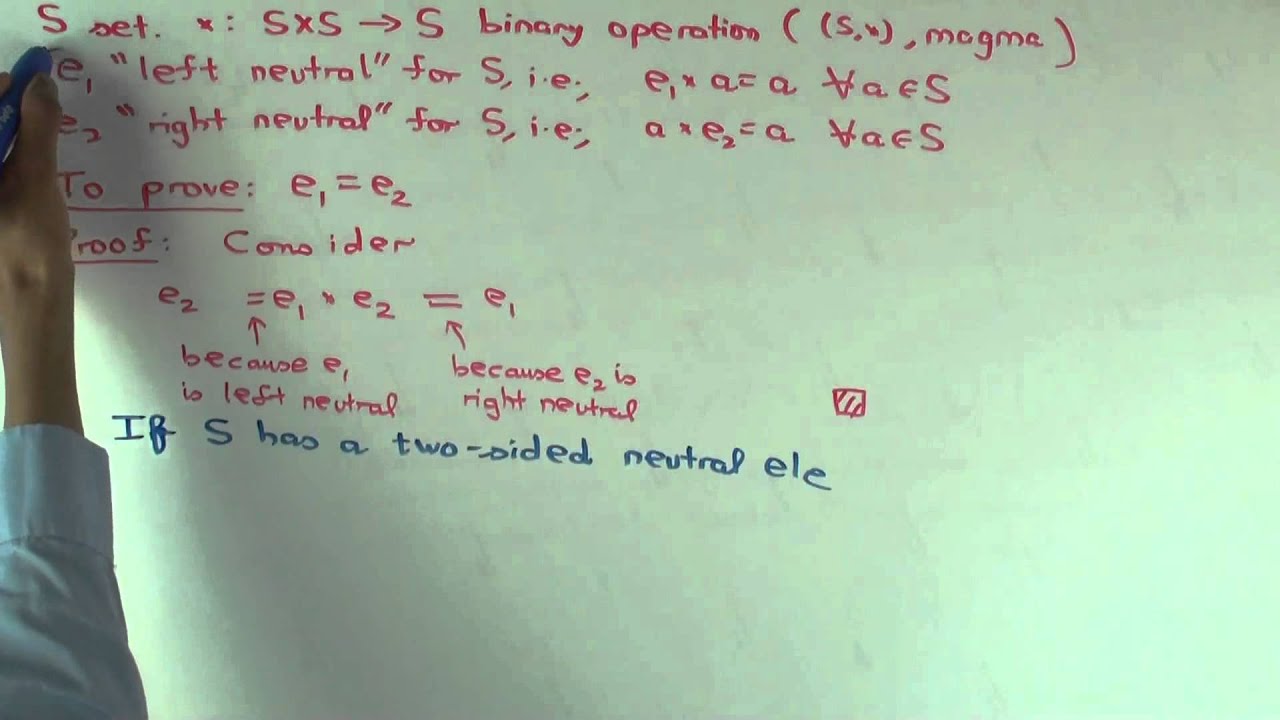 S set. *: S×S → S binary operation ((S,*), magma)
e₁ "left neutral" for S, i.e., e₁ * a = a ∀a∈S
e₂ "right neutral" for S, i.e., a * e₂ = a ∀a∈S
To prove: e₁ = e₂
Proof: Consider
e₂ = e₁ * e₂ = e₁
↑ ↖
because e₁
is left neutral
because e₂ is
right neutral
If S has a two-sided neutral ele